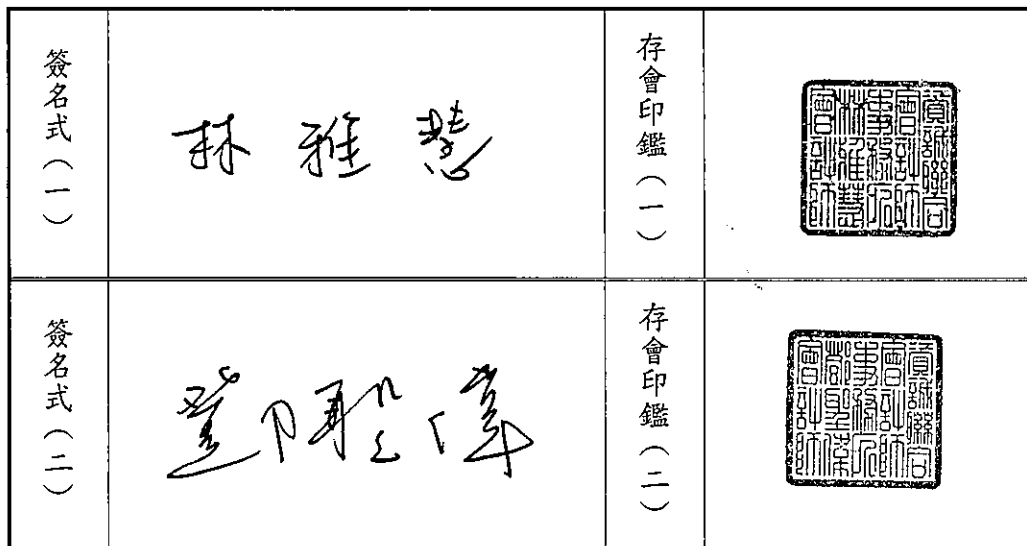 簽名式（一）
林雅慧
存會印鑑（一）
資誠聯合
會計師
事務所
林雅慧
會計師
簽名式（二）
鄧聖偉
存會印鑑（二）
資誠聯合
會計師
事務所
鄧聖偉
會計師